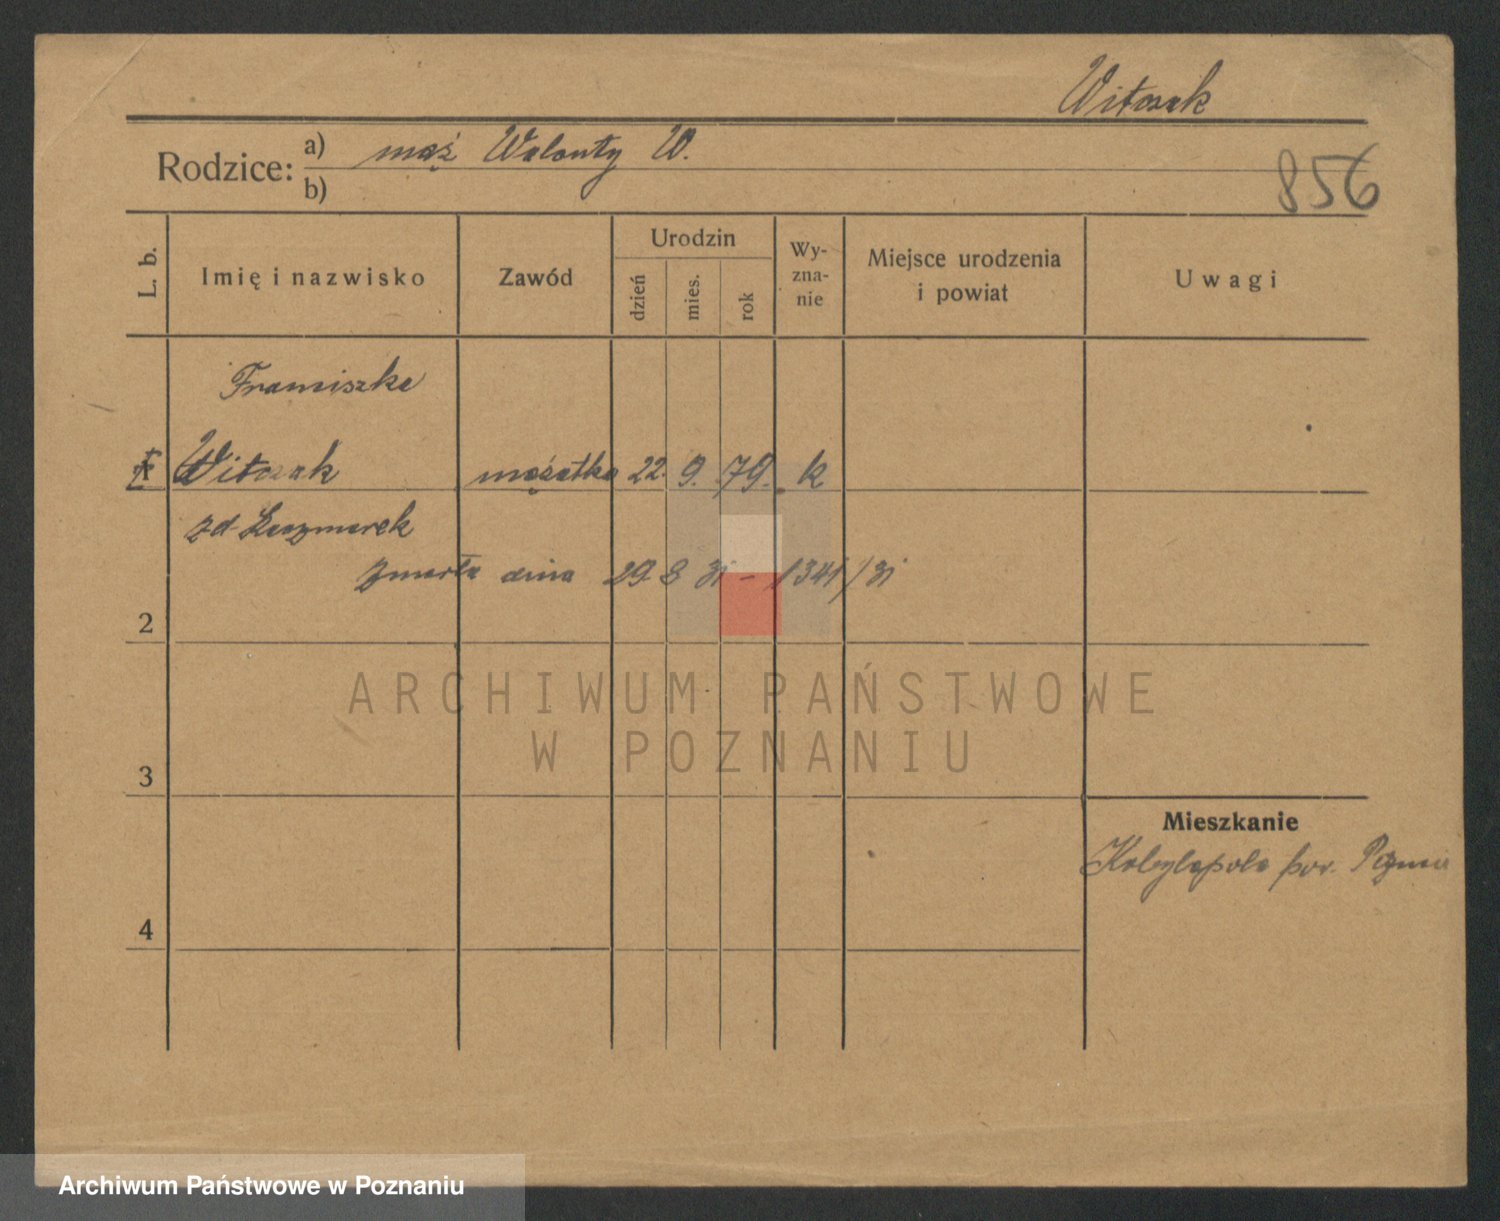 Witczak
Rodzice: a) mąż Walenty W.
b)
856
L. b.
Imię i nazwisko
Zawód
Urodzin
dzień
mies.
rok
Wy-
zna-
nie
Miejsce urodzenia
i powiat
Uwagi
Franciszka
Witczak mężatka 22. 9. 79. k
zd Kaczmarek
zmarła dnia 29 8 31 - 1341/31
2
3
4
Mieszkanie
Kobylepole pow. Poznań
ARCHIWUM PAŃSTWOWE
W POZNANIU
Archiwum Państwowe w Poznaniu